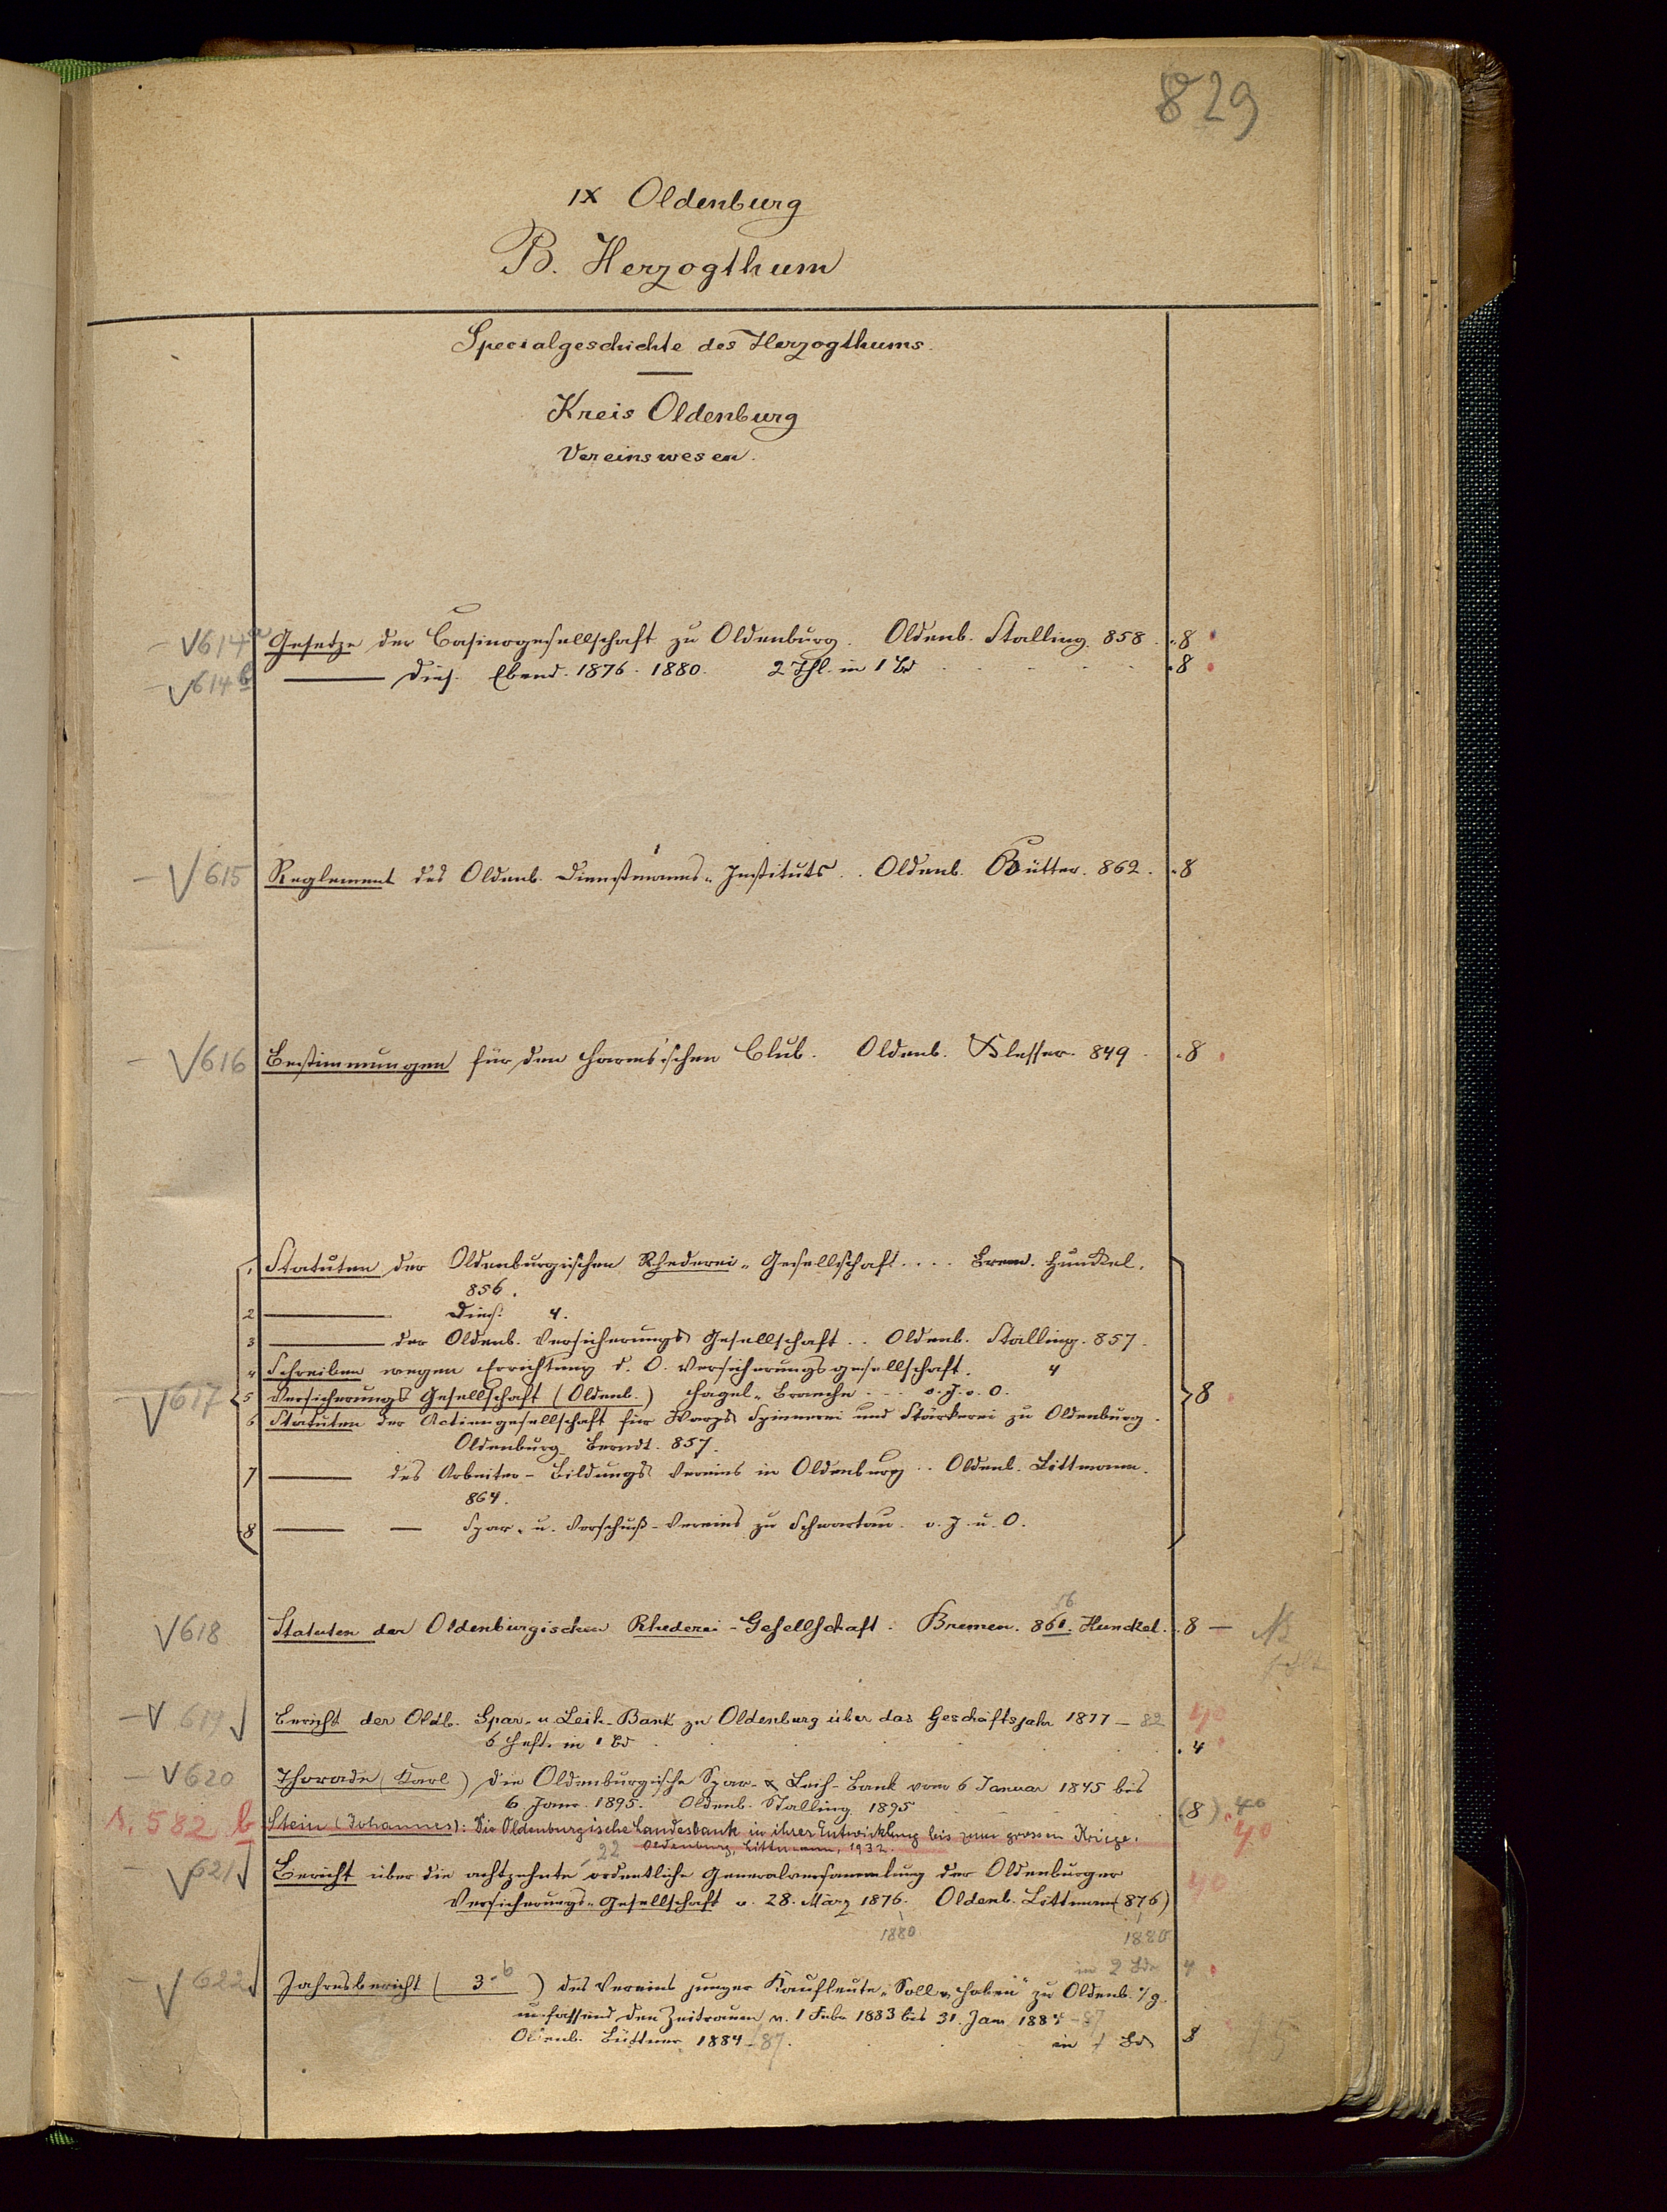 829
IX Oldenburg
B. Herzogthum
Specialgeschichte des Herzogthums.
Kreis Oldenburg
Vereinswesen.
V 614a Gesetze der Casinogesellschaft zu Oldenburg. Oldenb. Stalling. 858. 8
V 614b —— Dies. Ebend. 1876. 1880. 2 Thl. in 1 Bd 8
V 615 Reglement des Oldenb. Dienstmanns-Instituts.. Oldenb. Büttner. 862. 8
V 616 Bestimmungen für den Harms'schen Club. Oldenb. 849. 8
V 617
1 Statuten der Oldenburgischen Rhederei-Gesellschaft.... Brem. Hunckel.
856.
2 —— Dies. 4.
3 —— der Oldenb. Versicherungs Gesellschaft.. Oldenb. Stalling. 857.
4 Schreiben wegen Errichtung d. O. Versicherungsgesellschaft. 4
5 Versicherungs Gesellschaft (Oldenb.) Hagel-Branche... o. J. o. O. 8
6 Statuten der Actiengesellschaft für Warps Spinnerei und Stärkerei zu Oldenburg.
Oldenburg Berndt. 857.
7 —— des Arbeiter-Bildungs Vereins in Oldenburg.. Oldenb. Littmann.
864.
8 —— — Spar- u. Vorschuß-Vereins zu Schwartau. o. J. u. O.
V 618 Statuten der Oldenburgischen Rhederei-Gesellschaft. Bremen. 861. 56 Hunckel. 8 —
V 619 Bericht der Oldb. Spar- u. Leih-Bank zu Oldenburg über das Geschäftsjahr 1877–82 40
6 Hefte in 1 Bd 4
V 620 Thorade (Karl) Die Oldenburgische Spar- & Leih-Bank vom 6 Januar 1845 bis
6 Janr. 1895. Oldenb. Stalling 1895 (8). 40
s. 582 b Stein (Johannes): Die Oldenburgische Landesbank in ihrer Entwicklung bis zum grossen Kriege. 40
Oldenburg, Littmann, 1932.
22
V 621 Bericht über die achtzehnte ordentliche Generalversammlung der Oldenburger 40
Versicherungs-Gesellschaft v. 28. März 1876. Oldenb. Littmann (876)
1880 1880
in 2 Bde 4
V 622 Jahresbericht (3.-6) des Vereins junger Kaufleute „Soll u. Haben" zu Oldenb. i/g.
umfassend den Zeitraum v. 1 Febr 1883 bis 31. Jan 1884–87
Oldenb. Büttner 1884–87. in 1 Bd 8